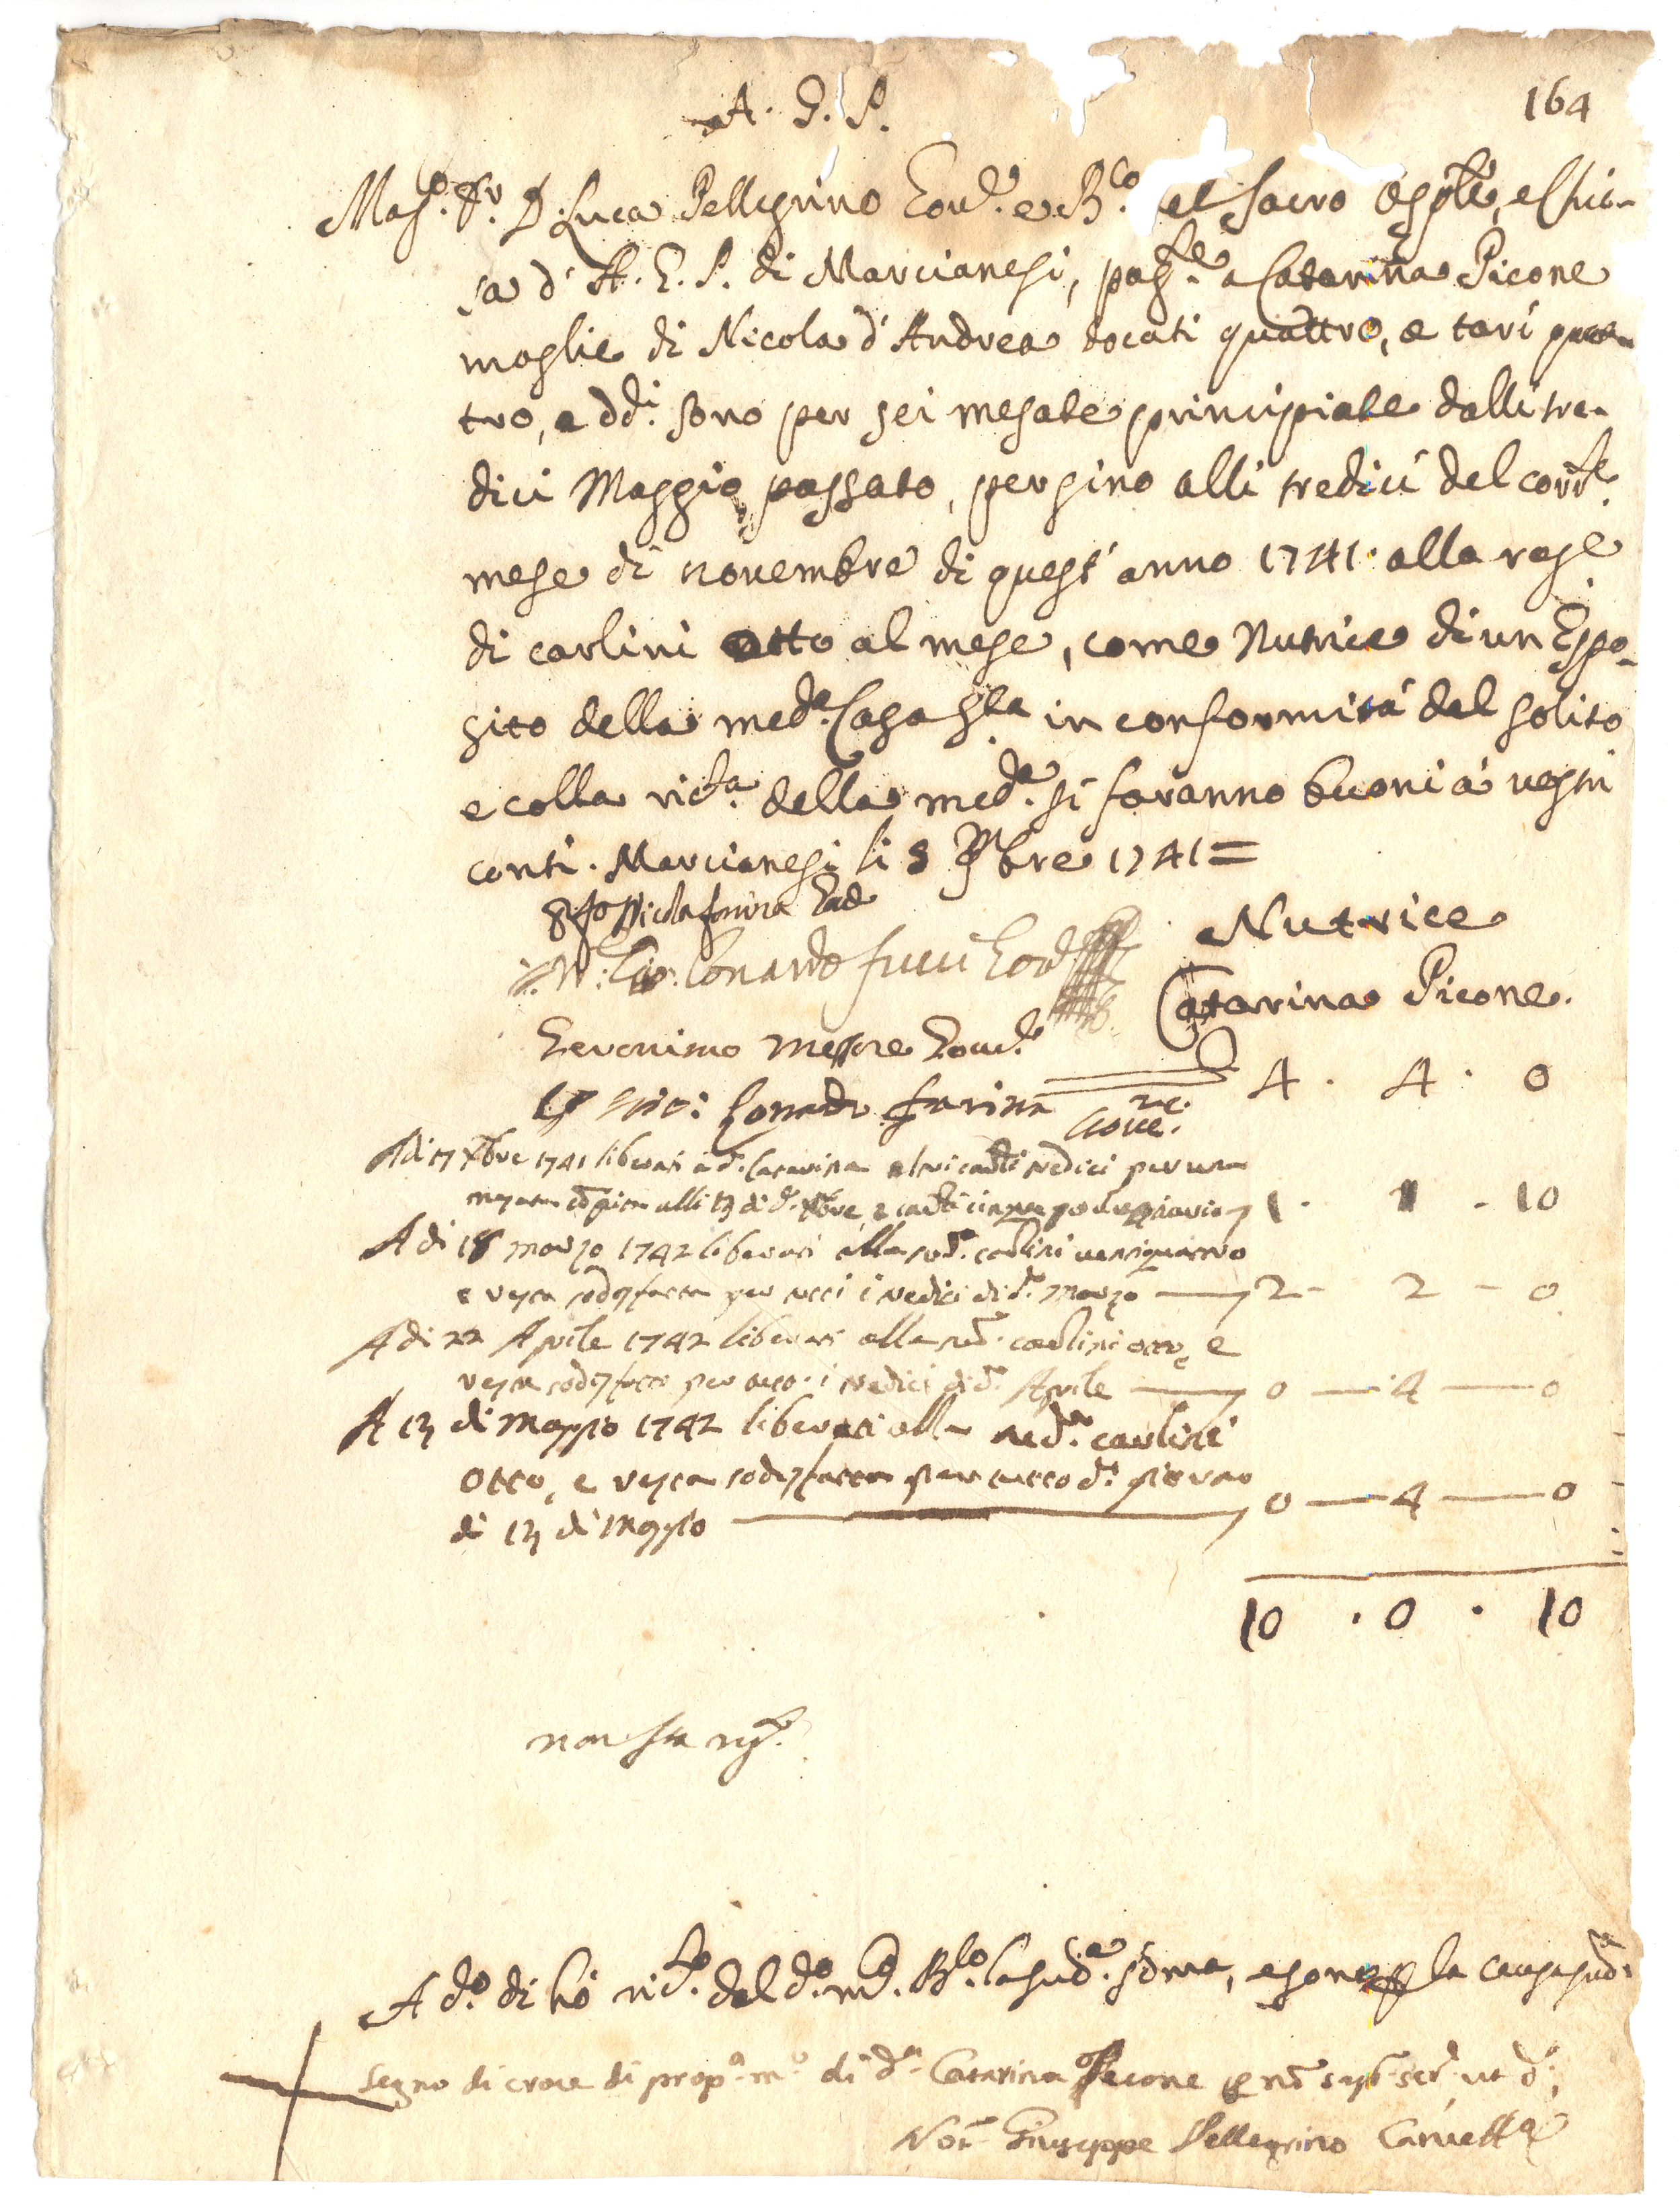 A. G. P.
164
Mag.co Sr. D. Luca Pellegrino Gov.e e B.co del Sacro Osple, e Chie-
sa d' A. G. P. di Marcianesi, pag.te a Catarina Picone
moglie di Nicola d' Andrea docati quattro, e tarì quat-
tro, e dd.i sono per sei mesate principiate dalli tre-
dici Maggio passato, persino alli tredici del corr.te
mese di novembre di quest' anno 1741. alla rag.e
di carlini otto al mese, come Nutrice di un Espo-
sito della med.a Casa Sta in conformità del solito
e colla ric.ta della med.a si faranno buoni a' vestri
conti. Marcianesi li 8 9mbre 1741=
Nicola
Nutrice
Lonardo Fucci Gov.
Catarina Picone.
Geronimo Messore Gov.e
4 . 4 . 0
Lonardo Farina
Adi 17 Xbre 1741 liberati a d.a Catarina altri carlini tredici per una
mesata compita alli 13 di d.o Xbre, e carlini cinque 1 . 1 . 10
A di 18 marzo 1742 liberati alla sud.a carlini ventiquattro
e resta sodisfatta per tutti i tredici di d.o Marzo — 2 - 2 - 0
A di 22 Aprile 1742 liberati alla sud.a carlini otto, e
resta sodisfatta per tutto i tredici di d.o Aprile — 0 — 4 — 0
A 13 di Maggio 1742 liberati alla med.a carlini
otto, e resta sodisfatta per tutto d.o giorno
di 13 di Maggio — 0 — 4 — 0
10 . 0 . 10
non sta
A d.o di hò ric.to dal d.o m.co B.co la sud.a soma, e sono per la causa sud.a
Segno di croce di prop.a m.o di d.a Catarina Pecone p. nō sap. scr. ut d.
Not. Giuseppe Pellegrino Canc.